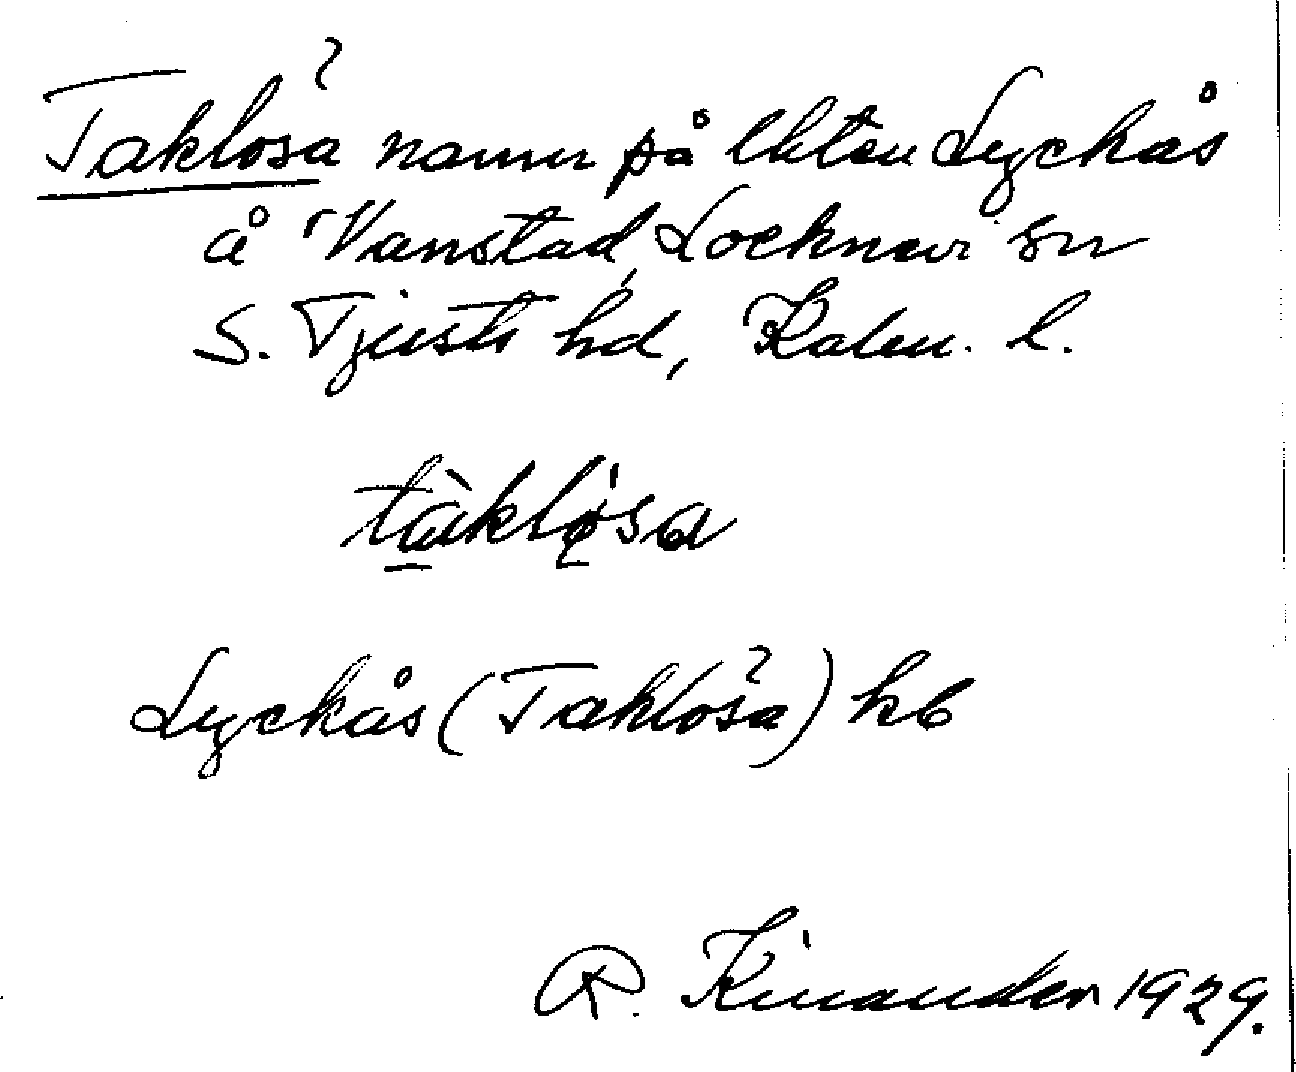 Taklosa? namn på lhten Lyckås
å Vanstad, Locknevi sn
S. Tjusts hd, Kalm. l.
tàkløsa
Lyckås (Taklosa?) kb
R. Kinander 1929.